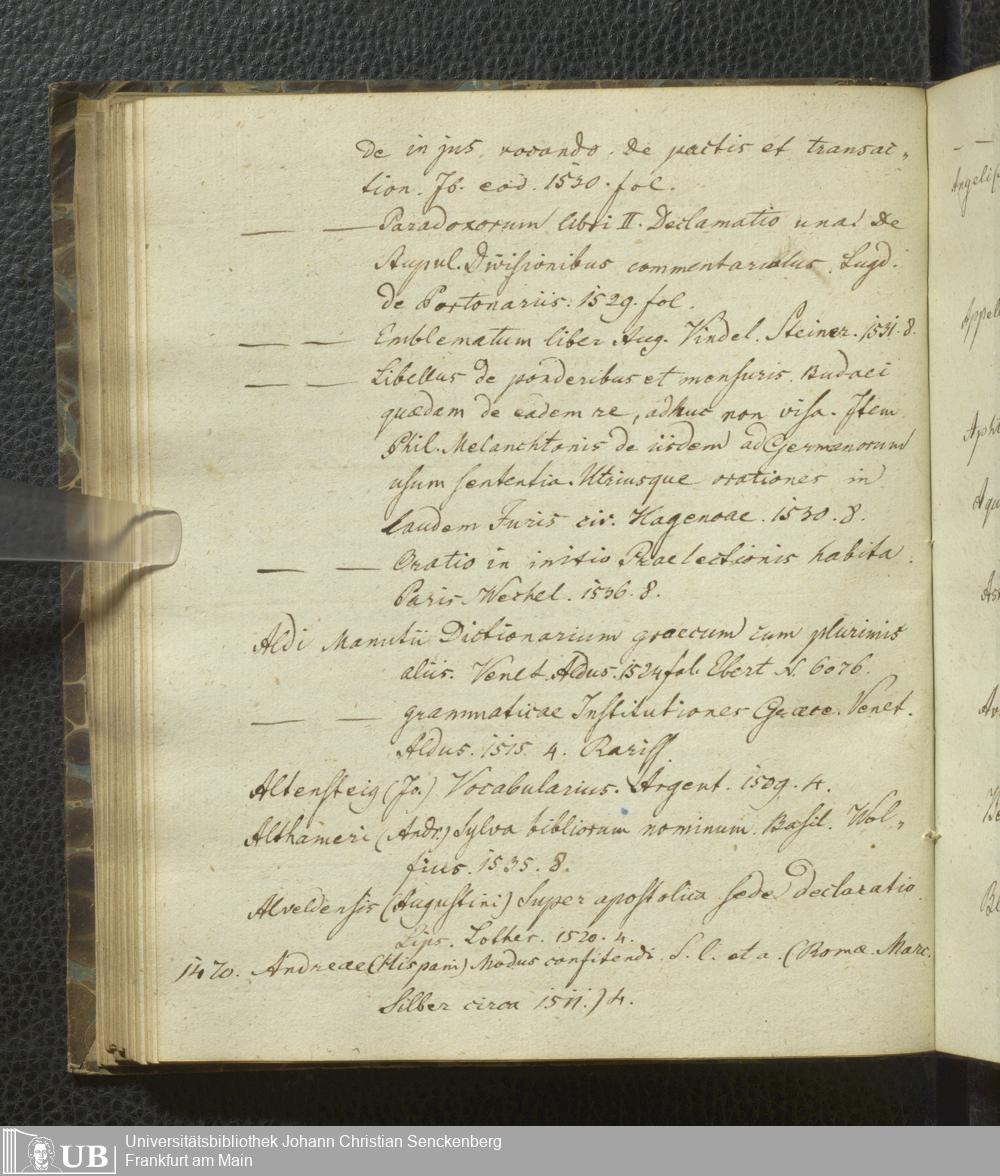 de in jus vocando. De pactis et transac„
tion. Ib. eod. 1530. fol.
— — Paradoxorum libri II. Declamatio una. De
Stupul. Divisionibus commentariolus. Lugd.
de Portonariis. 1529. fol.
— — Emblematum liber Aug. Vindel. Steiner. 1531. 8.
— — Libellus de ponderibus et mensuris. Budaei
quaedam de eadem re, adhuc non visa. Item
Phil. Melanchtonis de iisdem ad Germanorum
usum sententia. Utriusque orationes in
laudem Juris civ. Hagenoae. 1530. 8.
— — Oratio in initio Praelectionis habita.
Paris. Wechel. 1536. 8.
Aldi Manutii Dictionarium graecum cum plurimis
aliis. Venet. Aldus. 1524 fol. Ebert N. 6076.
— — grammaticae Institutiones Graece. Venet.
Aldus. 1515. 4. Rariss
Altensteig (Jo.) Vocabularius. Argent. 1509. 4.
Althameri (Andr.) Sylva bibliorum nominum. Basil. Wol„
fius. 1535. 8.
Alveldensis (Augustini) Super apostolica sede declaratio
Lips. Lother. 1520. 4.
1470. Andreae (Hispani) Modus confitendi. S. l. et a. (Romae Marc.
Silber circa 1511.) 4.
UB
Universitätsbibliothek Johann Christian Senckenberg
Frankfurt am Main